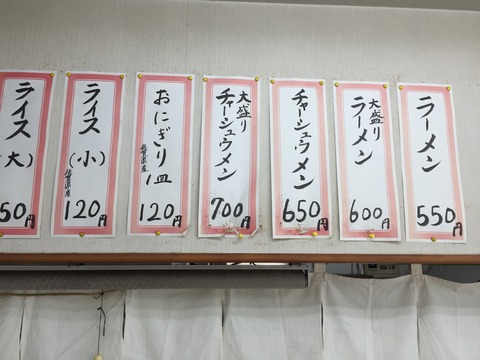 ラーメン
550円
大盛り
ラーメン
600円
チャーシュウメン
650円
大盛り
チャーシュウメン
700円
おにぎり一皿
佐賀県産
120円
ライス(小)
佐賀県産
120円
ライス(大)
50円